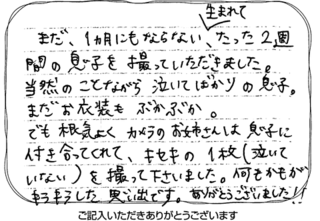 まだ、1ヵ月にもならない、生まれてたった2週
間の息子を撮っていただきました。
当然のことながら泣いてばかりの息子。
まだお衣装もぶかぶか。
でも根気よくカメラのお姉さんは息子に
付き合ってくれて、キセキの1枚(泣いて
いない)を撮って下さいました。何もかもが
キラキラした思い出です。ありがとうございました!!
ご記入いただきありがとうございます